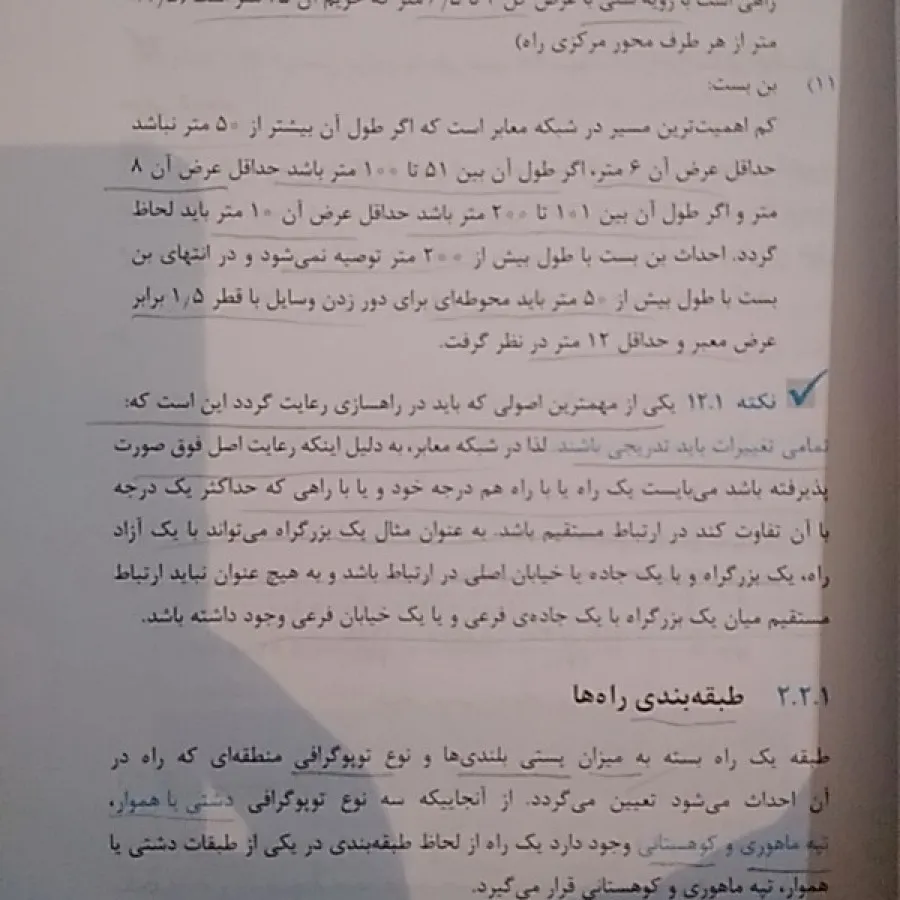 راهی است با رویه شنی با عرض کل
متر از هر طرف محور مرکزی راه)
۱۱) بن بست:
کم اهمیت‌ترین مسیر در شبکه معابر است که اگر طول آن بیشتر از ۵۰ متر نباشد
حداقل عرض آن ۶ متر، اگر طول آن بین ۵۱ تا ۱۰۰ متر باشد حداقل عرض آن ۸
متر و اگر طول آن بین ۱۰۱ تا ۲۰۰ متر باشد حداقل عرض آن ۱۰ متر باید لحاظ
گردد. احداث بن بست با طول بیش از ۲۰۰ متر توصیه نمی‌شود و در انتهای بن
بست با طول بیش از ۵۰ متر باید محوطه‌ای برای دور زدن وسایل با قطر ۱٫۵ برابر
عرض معبر و حداقل ۱۲ متر در نظر گرفت.
نکته ۱۲.۱ یکی از مهمترین اصولی که باید در راهسازی رعایت گردد این است که:
تمامی تغییرات باید تدریجی باشند. لذا در شبکه معابر، به دلیل اینکه رعایت اصل فوق صورت
پذیرفته باشد می‌بایست یک راه یا با راه هم درجه خود و یا با راهی که حداکثر یک درجه
با آن تفاوت کند در ارتباط مستقیم باشد. به عنوان مثال یک بزرگراه می‌تواند با یک آزاد
راه، یک بزرگراه و با یک جاده یا خیابان اصلی در ارتباط باشد و به هیچ عنوان نباید ارتباط
مستقیم میان یک بزرگراه با یک جاده‌ی فرعی و یا یک خیابان فرعی وجود داشته باشد.
۲.۲.۱ طبقه‌بندی راه‌ها
طبقه یک راه بسته به میزان پستی بلندی‌ها و نوع توپوگرافی منطقه‌ای که راه در
آن احداث می‌شود تعیین می‌گردد. از آنجاییکه سه نوع توپوگرافی دشتی یا هموار،
تپه ماهوری و کوهستانی وجود دارد یک راه از لحاظ طبقه‌بندی در یکی از طبقات دشتی یا
هموار، تپه ماهوری و کوهستانی قرار می‌گیرد.